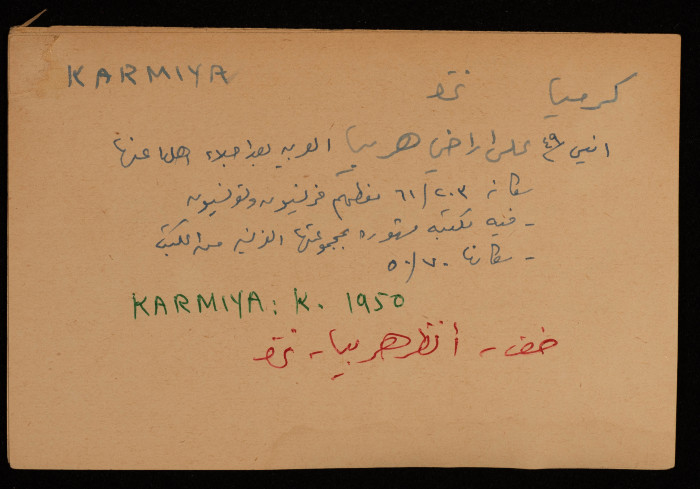 KARMIYA كرميا
انشئ ٤٩ على اراضي هربيا العربيه بعد اجلاء اهلها عنها
سكانه ٢٠٣/٦١ معظمهم فرنسيون وتونسيون
- فيه مكتبه مشهوره بمجموعتها الغنيه من الكتب
- سكانها ٧٠/٥٠
KARMIYA: K. 1950
أنظر هربيا -